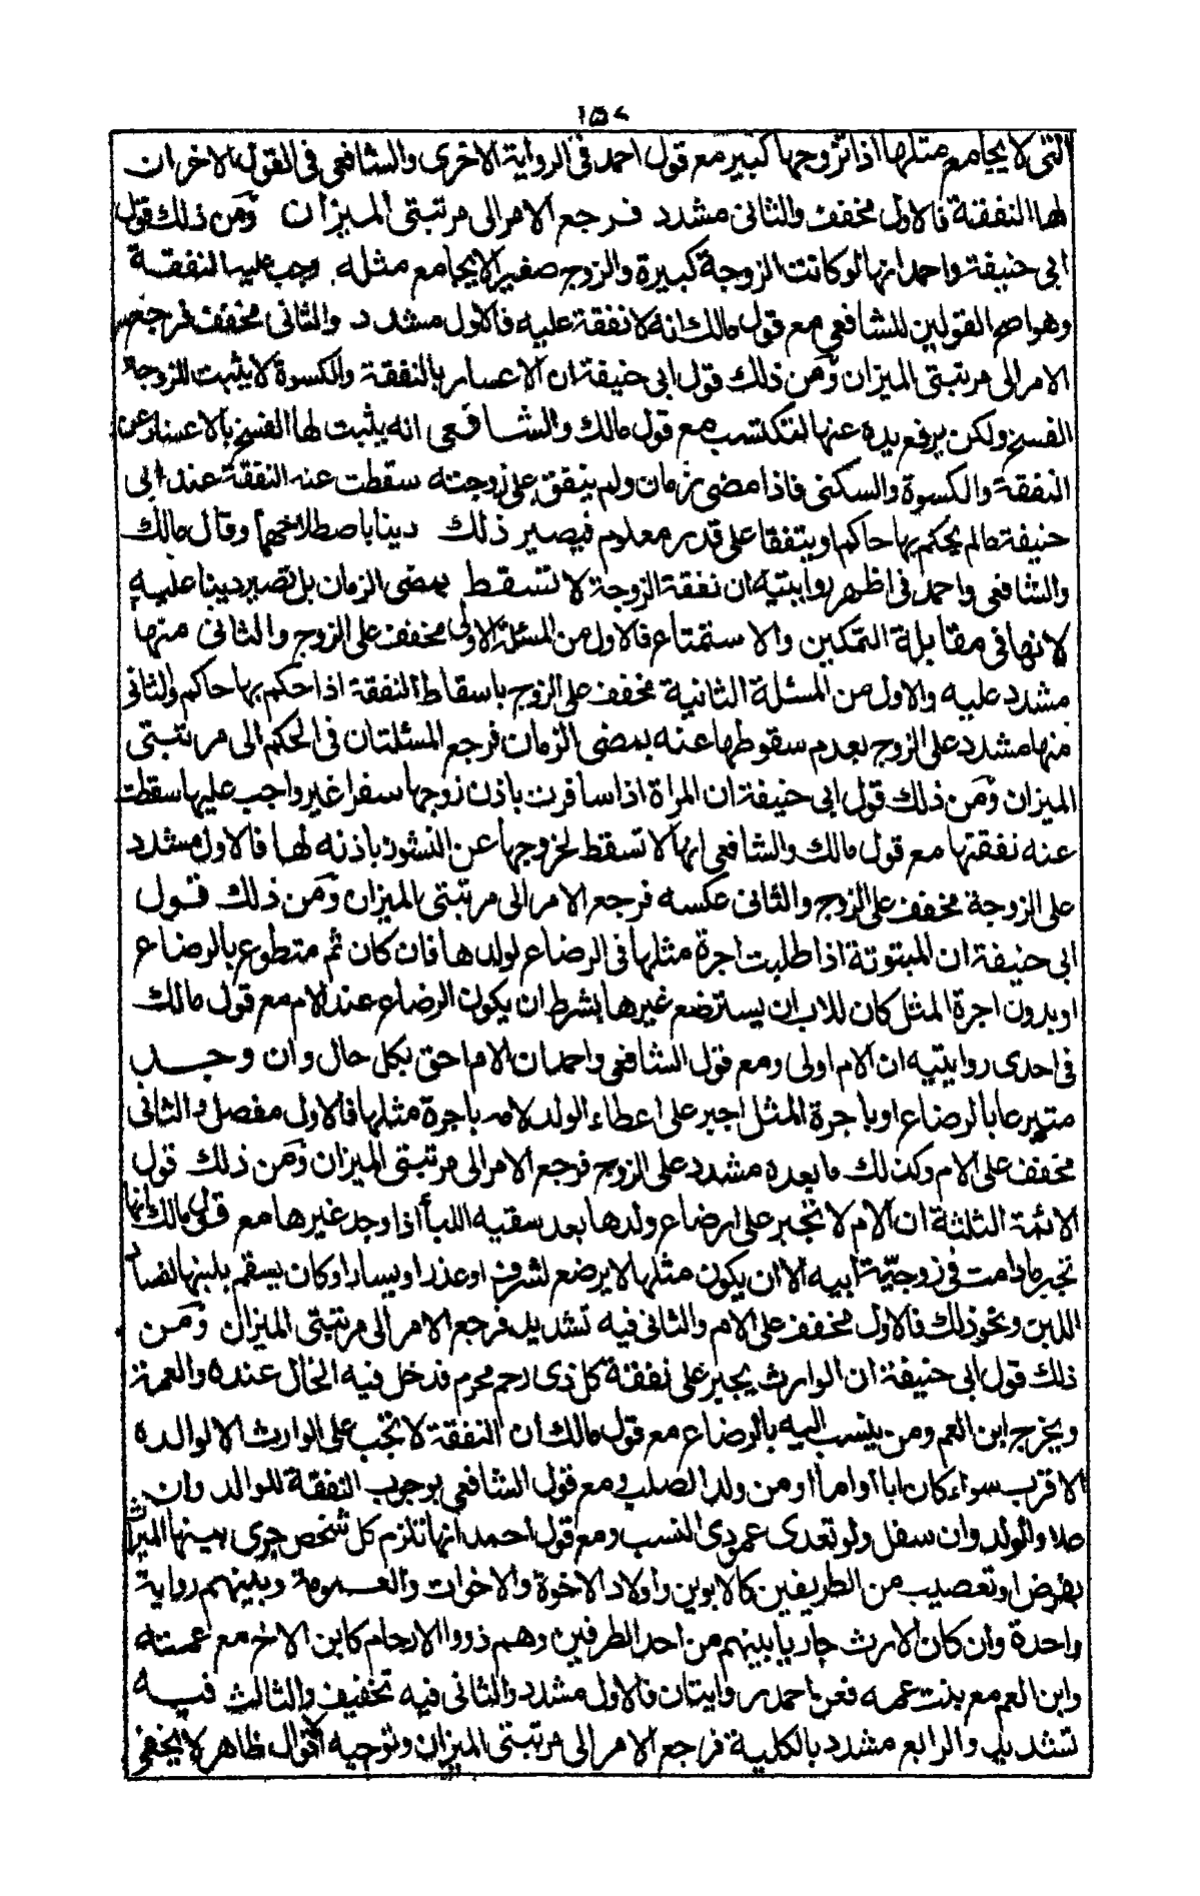 ١٥٨
التى لا يجامع مثلها اذا تزوجها كبير مع قول احمد فى الرواية الاخرى والشافعى فى القول الاخر ان
لها النفقة فالاول مخفف والثانى مشدد فرجع الامر الى مرتبتى الميزان ومن ذلك قول
ابى حنيفة واحمد انها لو كانت الزوجة كبيرة والزوج صغير لا يجامع مثله وجب عليه النفقة
وهو اصح القولين للشافعى مع قول مالك انه لا نفقة عليه فالاول مشدد والثانى مخفف فرجع
الامر الى مرتبتى الميزان ومن ذلك قول ابى حنيفة ان الاعسار بالنفقة والكسوة لا يثبت للزوجة
الفسخ ولكن يرفع يده عنها لتكتسب مع قول مالك والشافعى انه يثبت لها الفسخ بالاعسار عن
النفقة والكسوة والسكنى فاذا مضى زمان ولم ينفق على زوجته سقطت عنه النفقة عند ابى
حنيفة مالم يحكم بها حاكم او يتفقا على قدر معلوم فيصير ذلك دينا باصطلاحهما وقال مالك
والشافعى واحمد فى اظهر روايتيه ان نفقة الزوجة لا تسقط بمضى الزمان بل تصير دينا عليه
لانها فى مقابلة التمكين والاستمتاع فالاول من المسئلة الاولى مخفف على الزوج والثانى منها
مشدد عليه والاول من المسئلة الثانية مخفف على الزوج باسقاط النفقة اذا حكم بها حاكم والثانى
منها مشدد على الزوج بعدم سقوطها عنه بمضى الزمان فرجع المسئلتان فى الحكم الى مرتبتى
الميزان ومن ذلك قول ابى حنيفة ان المراة اذا سافرت باذن زوجها سفرا غير واجب عليها سقطت
عنه نفقتها مع قول مالك والشافعى انها لا تسقط لخروجها عن النشوز باذنه لها فالاول مشدد
على الزوجة مخفف على الزوج والثانى عكسه فرجع الامر الى مرتبتى الميزان ومن ذلك قول
ابى حنيفة ان المبتوتة اذا طلبت اجرة مثلها فى الرضاع لولدها فان كان ثم متطوع بالرضاع
او بدون اجرة المثل كان للاب ان يسترضع غيرها بشرط ان يكون الرضاع عند الام مع قول مالك
فى احدى روايتيه ان الام اولى ومع قول الشافعى واحمد ان الام احق بكل حال وان وجد
متبرعا بالرضاع او باجرة المثل اجبر على اعطاء الولد لامه باجرة مثلها فالاول مفصل والثانى
مخفف على الام وكذلك ما بعده مشدد على الزوج فرجع الامر الى مرتبتى الميزان ومن ذلك قول
الائمة الثلثة ان الام لا تجبر على ارضاع ولدها بعد سقيه اللبأ اذا وجد غيرها مع قول مالك انها
تجبر ما دامت فى زوجيّة ابيه الا ان يكون مثلها لا يرضع لشرف او عذر او يسار او كان يسقم بلبنها لفساد
اللبن ونحو ذلك فالاول مخفف على الام والثانى فيه تشديد فرجع الامر الى مرتبتى الميزان ومن
ذلك قول ابى حنيفة ان الوارث يجبر على نفقة كل ذى رحم محرم فدخل فيه الخال عنده والعمة
ويخرج ابن العم ومن ينسب اليه بالرضاع مع قول مالك ان النفقة لا تجب على الوارث الا لوالده
الاقرب سواء كان ابا او اما او من ولد الصلب ومع قول الشافعى بوجوب النفقة للوالد وان
علا والولد وان سفل ولو تعدى عمودى النسب ومع قول احمد انها تلزم كل شخص جرى بينهما الميراث
بفرض او تعصيب من الطريفين كالابوين واولاد الاخوة والاخوات والعمومة وبينهم رواية
واحدة وان كان الارث جاريا بينهم من احد الطرفين وهم ذووا الارحام كابن الاخ مع عمته
وابن العم مع بنت عمه فعن احمد روايتان فالاول مشدد والثانى فيه تخفيف والثالث فيه
تشديد والرابع مشدد بالكلية فرجع الامر الى مرتبتى الميزان وتوجيه الاقوال ظاهر لا يخفى